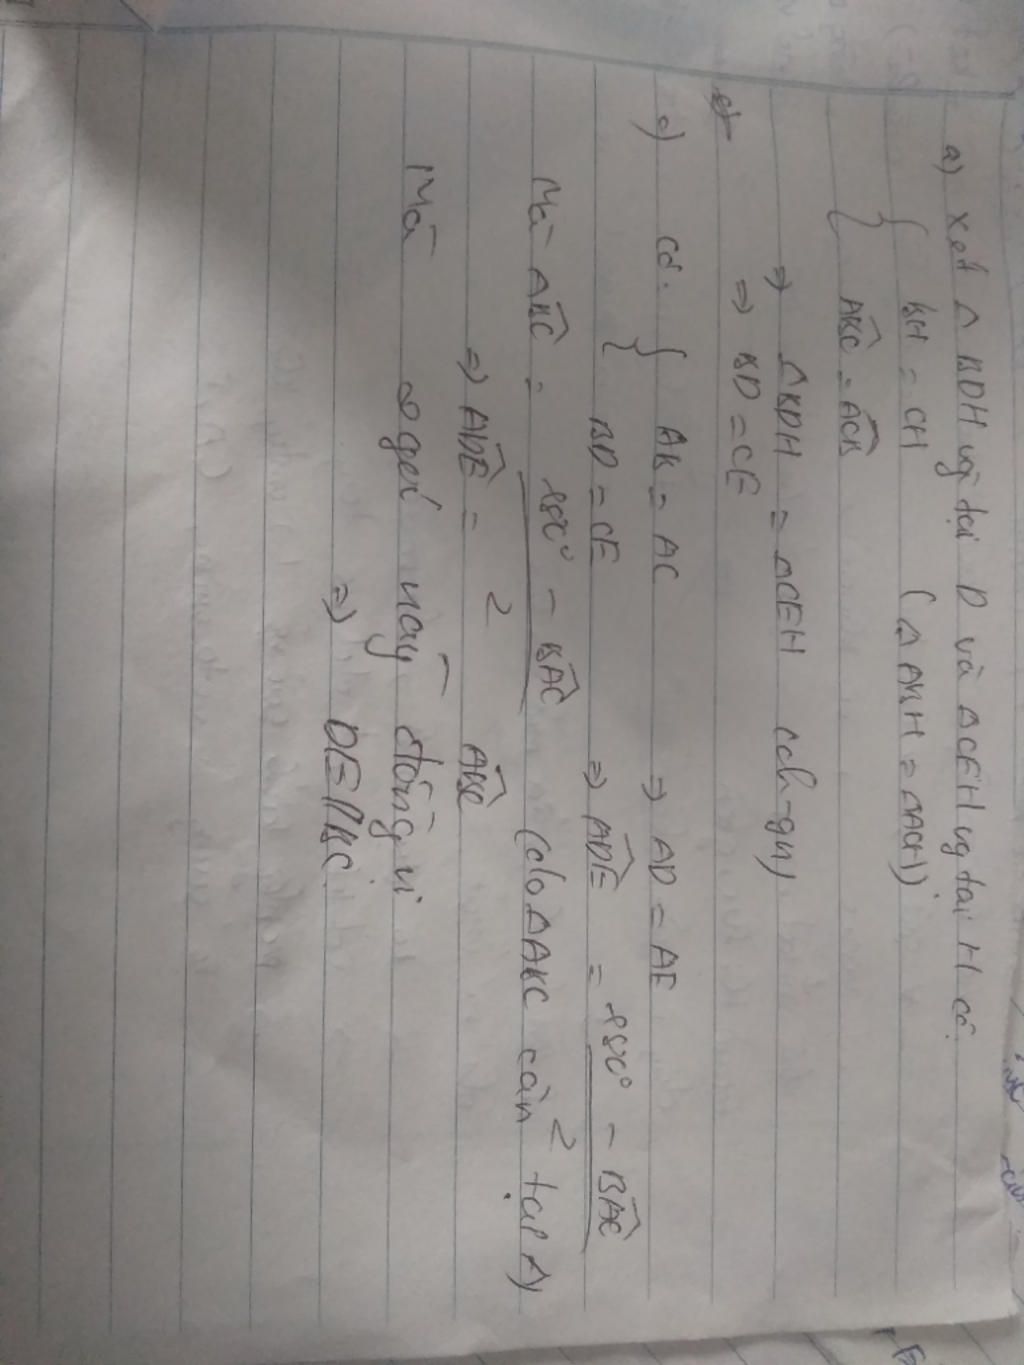 a) Xét Δ BDH vg tại D và ΔCEH vg tại H có
BH = CH (Δ ABH = ΔACH)
ABC = ACB
=> ΔBDH = ΔCEH (ch-gn)
=> BD = CE
c) có. AB = AC => AD = AE
BD = CE => ADE = 180° - BAC / 2
Mà ABC = 180° - BAC / 2 (do ΔABC cân tại A)
=> ADE = ABC
Mà 2 góc này đồng vị
=> DE // BC